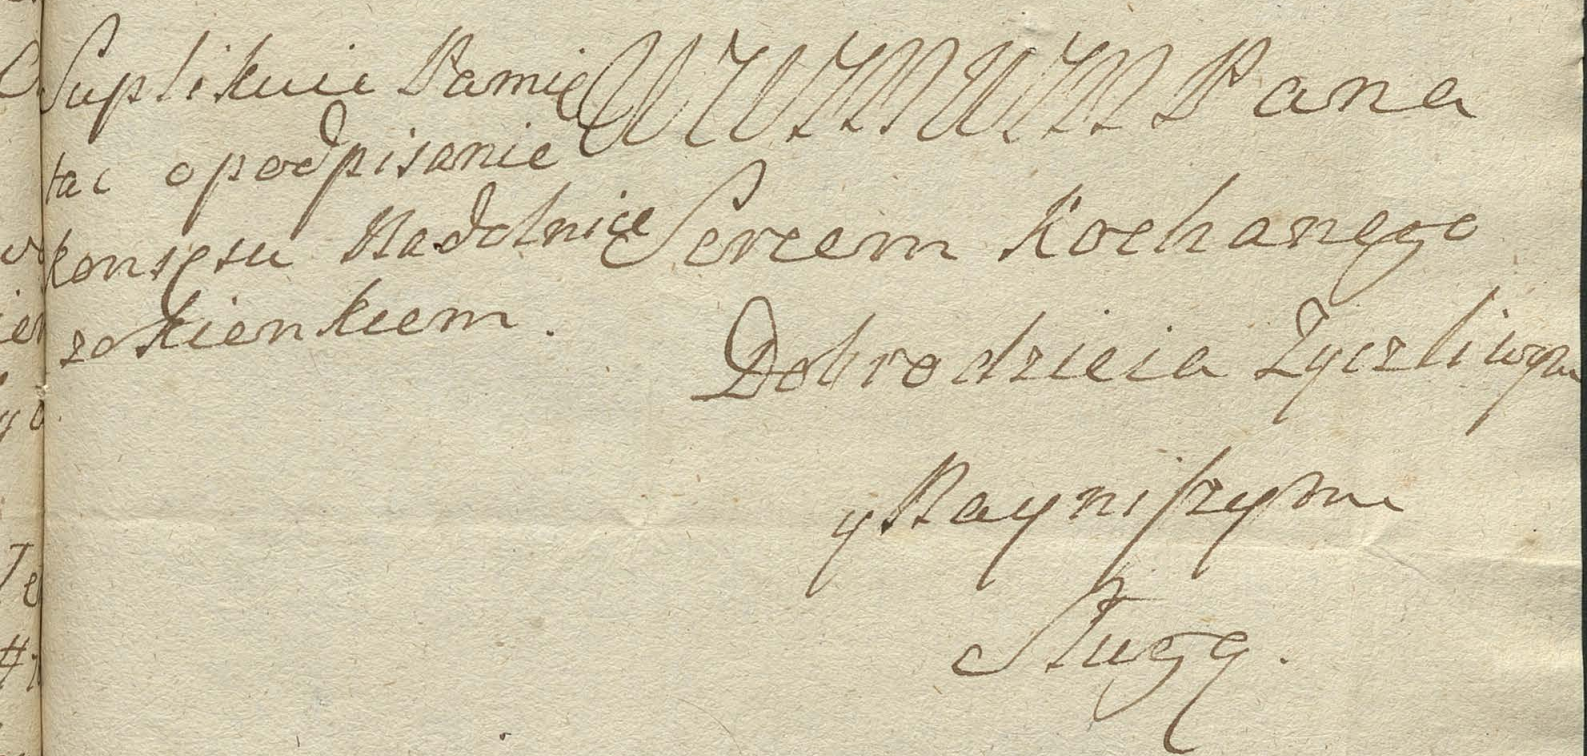 Suplikuie Pamię
tac opodpisanie
konsęsu Nadolnice
zokienkiem.
WWMWM Pana
Sercem Kochanego
Dobrodzieia Zyczliwym
y Nayniszym
Sługą.